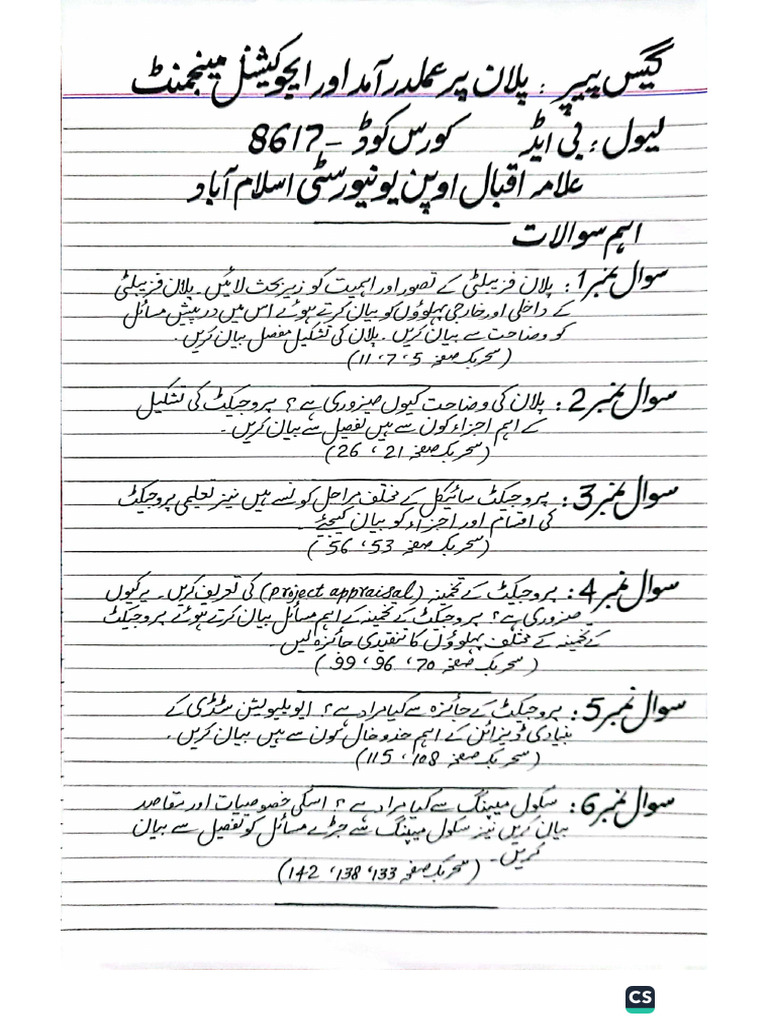 گیس پیپر : پلان پر عملدرآمد اور ایجوکیشنل مینجمنٹ
لیول : بی ایڈ کورس کوڈ - 8617
علامہ اقبال اوپن یونیورسٹی اسلام آباد
اہم سوالات
سوال نمبر 1: پلان فزیبلٹی کے تصور اور اہمیت کو زیر بحث لائیں۔ پلان فزیبلٹی
کے داخلی اور خارجی پہلوؤں کو بیان کرتے ہوئے اس میں درپیش مسائل
کو وضاحت سے بیان کریں۔ پلان کی تشکیل مفصل بیان کریں۔
(سحربک صفحہ 5، 7، 11)
سوال نمبر 2: پلان کی وضاحت کیوں ضروری ہے؟ پروجیکٹ کی تشکیل
کے اہم اجزاء کون سے ہیں تفصیل سے بیان کریں۔
(سحربک صفحہ 21، 26)
سوال نمبر 3: پروجیکٹ سائیکل کے مختلف مراحل کونسے ہیں نیز تعلیمی پروجیکٹ
کی اقسام اور اجزاء کو بیان کیجیئے۔
(سحربک صفحہ 53، 56)
سوال نمبر 4: پروجیکٹ کے تخمینہ (project appraisal) کی تعریف کریں۔ یہ کیوں
ضروری ہے؟ پروجیکٹ کے تخمینہ کے اہم مسائل بیان کرتے ہوئے پروجیکٹ
کے تخمینہ کے مختلف پہلوؤں کا تنقیدی جائزہ لیں۔
(سحربک صفحہ 70، 96، 99)
سوال نمبر 5: پروجیکٹ کے جائزہ سے کیا مراد ہے؟ ایویلیوایشن سٹڈی کے
بنیادی ڈیزائن کے اہم خدوخال کون سے ہیں بیان کریں۔
(سحربک صفحہ 108، 115)
سوال نمبر 6: سکول میپنگ سے کیا مراد ہے؟ اسکی خصوصیات اور مقاصد
بیان کریں نیز سکول میپنگ سے جڑے مسائل کو تفصیل سے بیان
کریں۔
(سحربک صفحہ 133، 138، 142)
CS